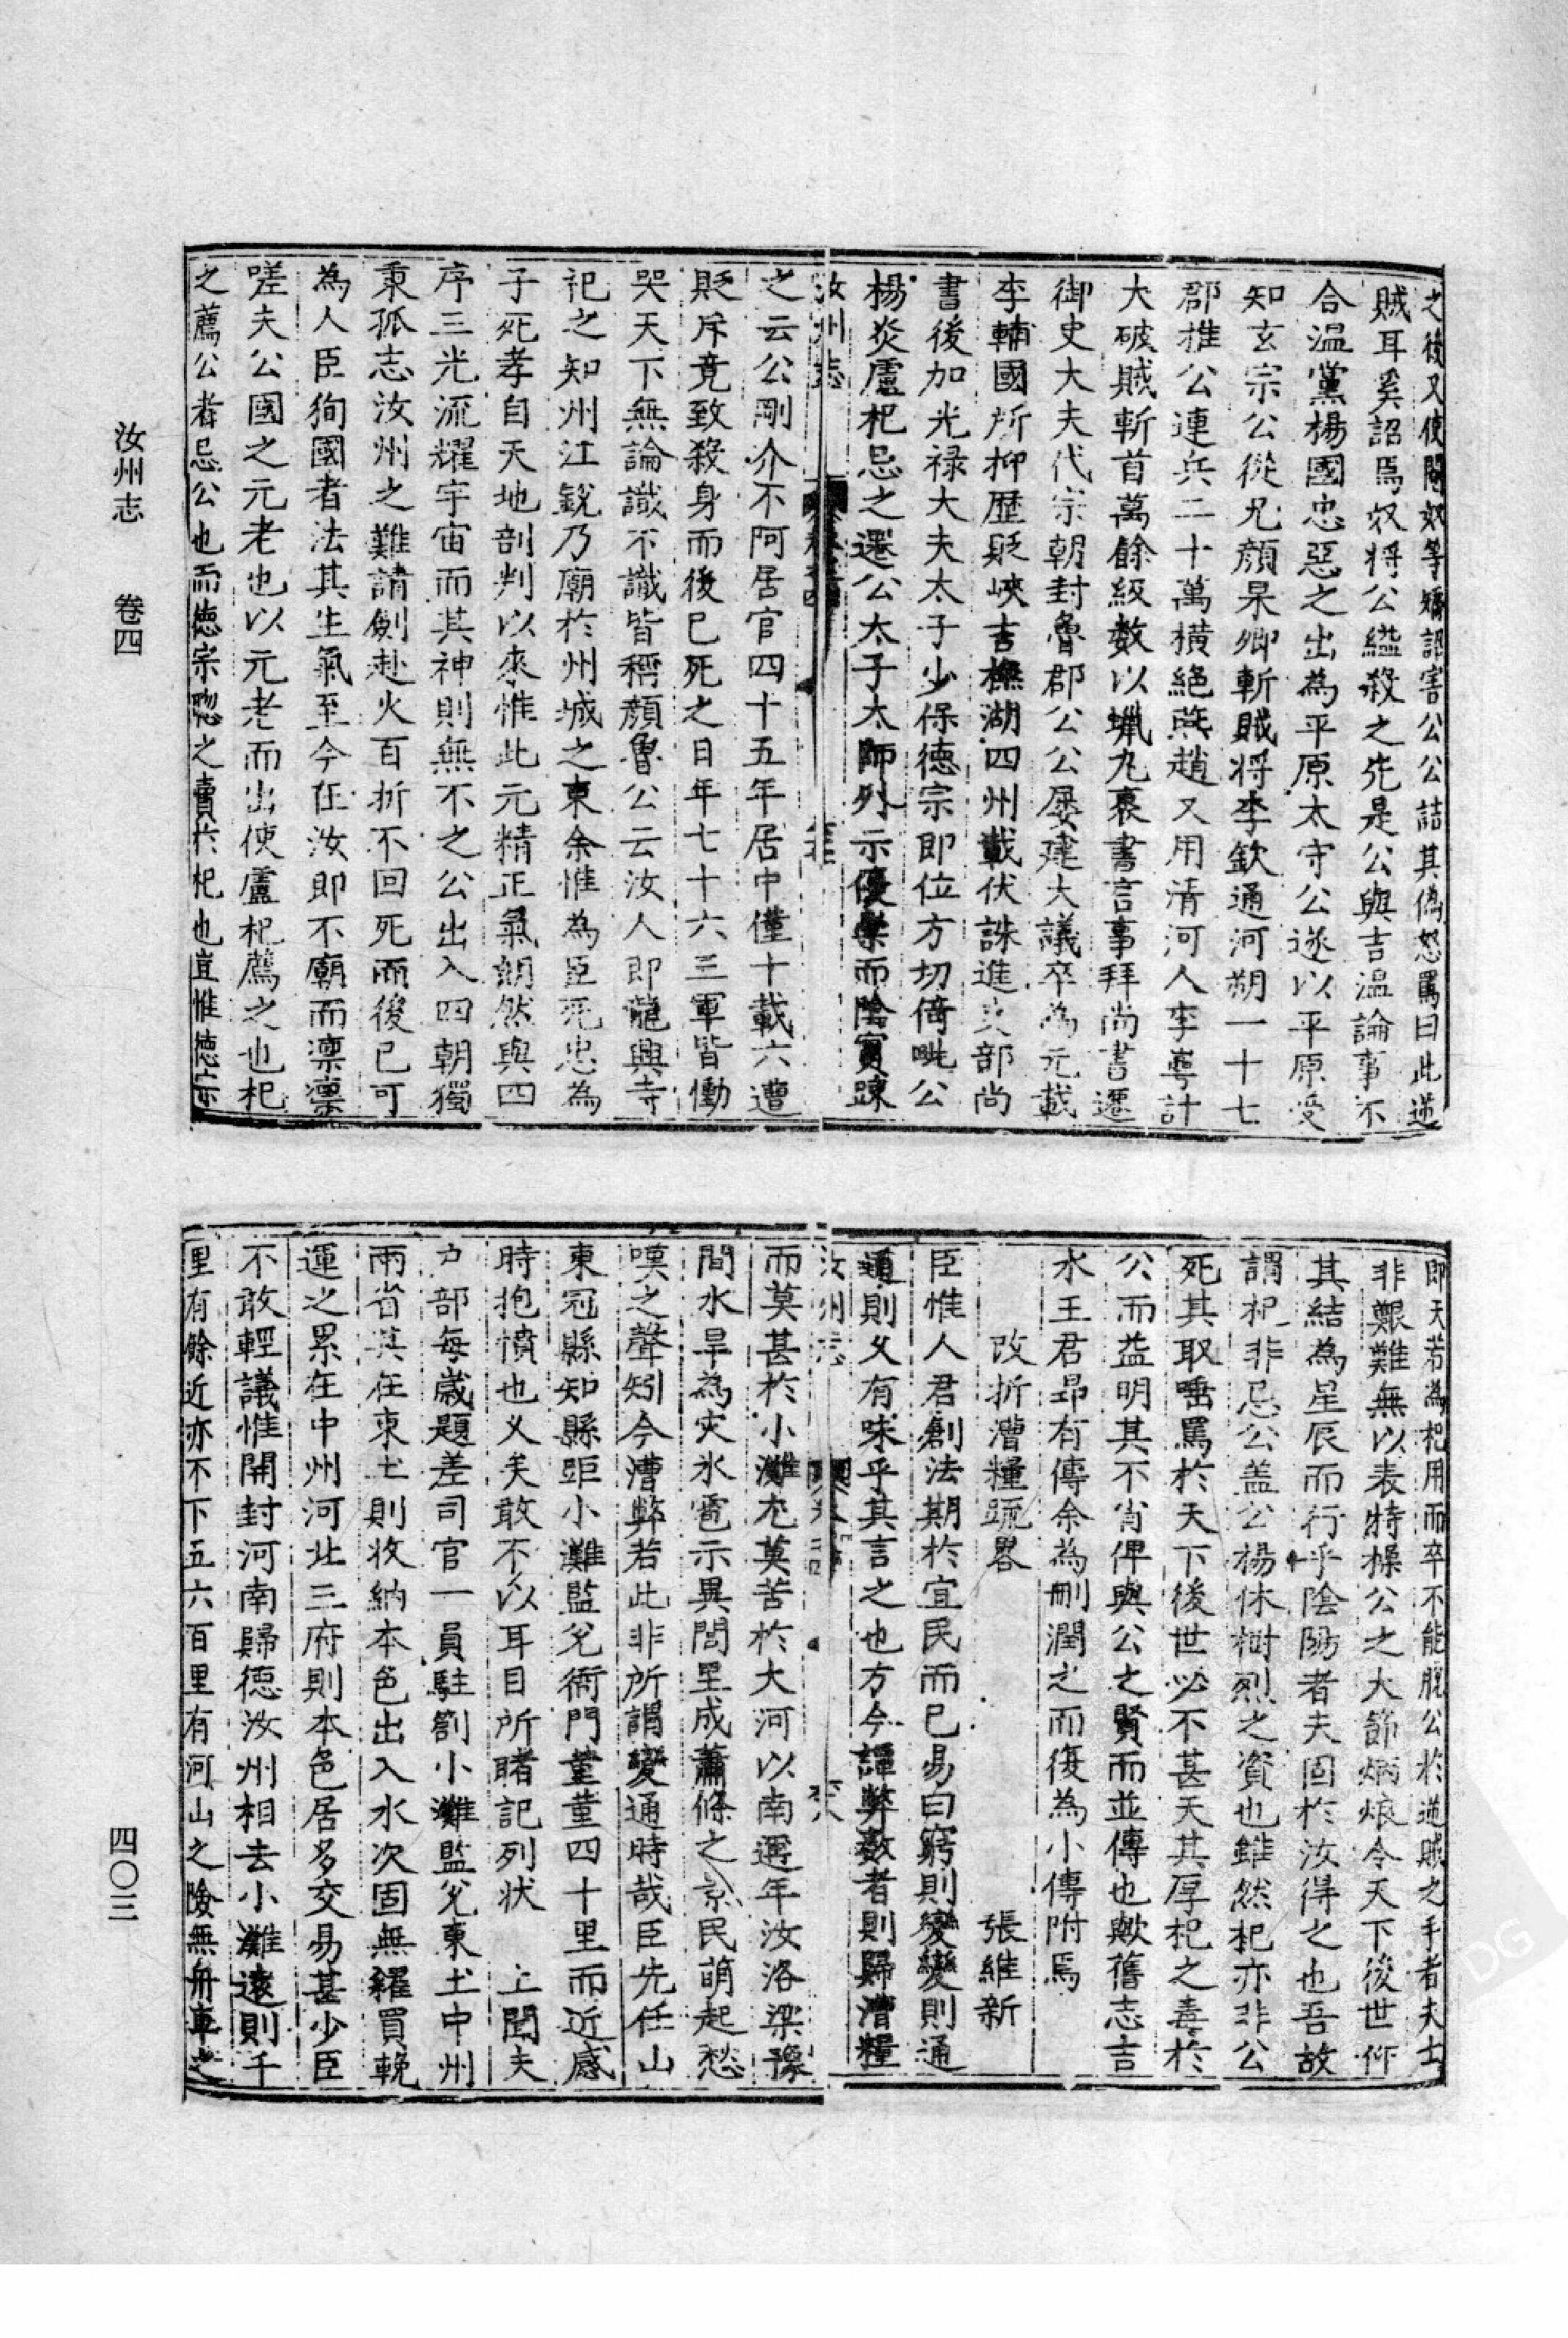 之後又使閹奴等矯詔害公公詰其偽怒罵曰此逆
賊耳奚詔焉奴將公縊殺之先是公與吉温論事不
合温黨楊國忠惡之出為平原太守公遂以平原受
知玄宗公從兄顔杲卿斬賊將李欽通河朔一十七
郡推公連兵二十萬横絶燕趙又用清河人李蕚計
大破賊斬首萬餘級數以蠟丸裹書言事拜尚書遷
御史大夫代宗朝封魯郡公公屡建大議卒為元載
李輔國所抑歴貶峽吉撫湖四州載伏誅進吏部尚
書後加光禄大夫太子少保德宗即位方切倚毗公
楊炎盧杞忌之遷公太子太師外示優崇而陰實踈
汝州志
之云公剛介不阿居官四十五年居中僅十載六遭
貶斥竟致殺身而後已死之日年七十六三軍皆慟
哭天下無論識不識皆稱顔魯公云汝人即龍興寺
祀之知州江鋭乃廟於州城之東余惟為臣死忠為
子死孝自天地剖判以來惟此元精正氣朗然與四
序三光流耀宇宙而其神則無不之公出入四朝獨
秉孤志汝州之難請劍赴火百折不回死而後已可
為人臣狥國者法其生氣至今在汝即不廟而凛凛
嗟夫公國之元老也以元老而出使盧杞薦之也杞
之薦公者忌公也而德宗愡之賣於杞也豈惟德宗
即天若為杞用而卒不能脱公於逆賊之手者夫士
非艱難無以表特操公之大節炳烺令天下後世仰
其結為星辰而行乎陰陽者夫固於汝得之也吾故
謂杞非忌公盖公楊休樹烈之資也雖然杞亦非公
死其取唾罵於天下後世必不甚天其厚杞之毒於
公而益明其不肖俾與公之賢而並傳也歟舊志吉
水王君昻有傳余為刪潤之而復為小傳附焉
改折漕糧疏畧　張維新
臣惟人君創法期於宜民而已易曰窮則變變則通
通則乂有味乎其言之也方今譚弊數者則歸漕糧
汝州志
而莫甚於小灘尤莫苦於大河以南邇年汝洛梁豫
間水旱為灾氷雹示異閭里成蕭條之景民萌起愁
嘆之聲矧今漕弊若此非所謂變通時哉臣先任山
東冠縣知縣距小灘監兊衙門董董四十里而近感
時抱憤也乂矣敢不以耳目所睹記列状　上聞夫
户部每歲題差司官一員駐劄小灘監兊東土中州
兩省其在東土則收納本色出入水次固無糴買輓
運之累在中州河北三府則本色居多交易甚少臣
不敢輕議惟開封河南歸德汝州相去小灘遠則千
里有餘近亦不下五六百里有河山之險無舟車之
汝州志　卷四
四〇三